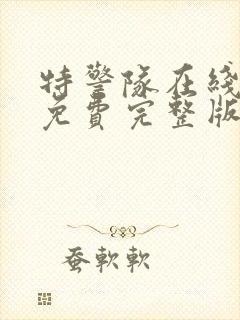 特警隊在綫
免費完整版
蚕軟軟